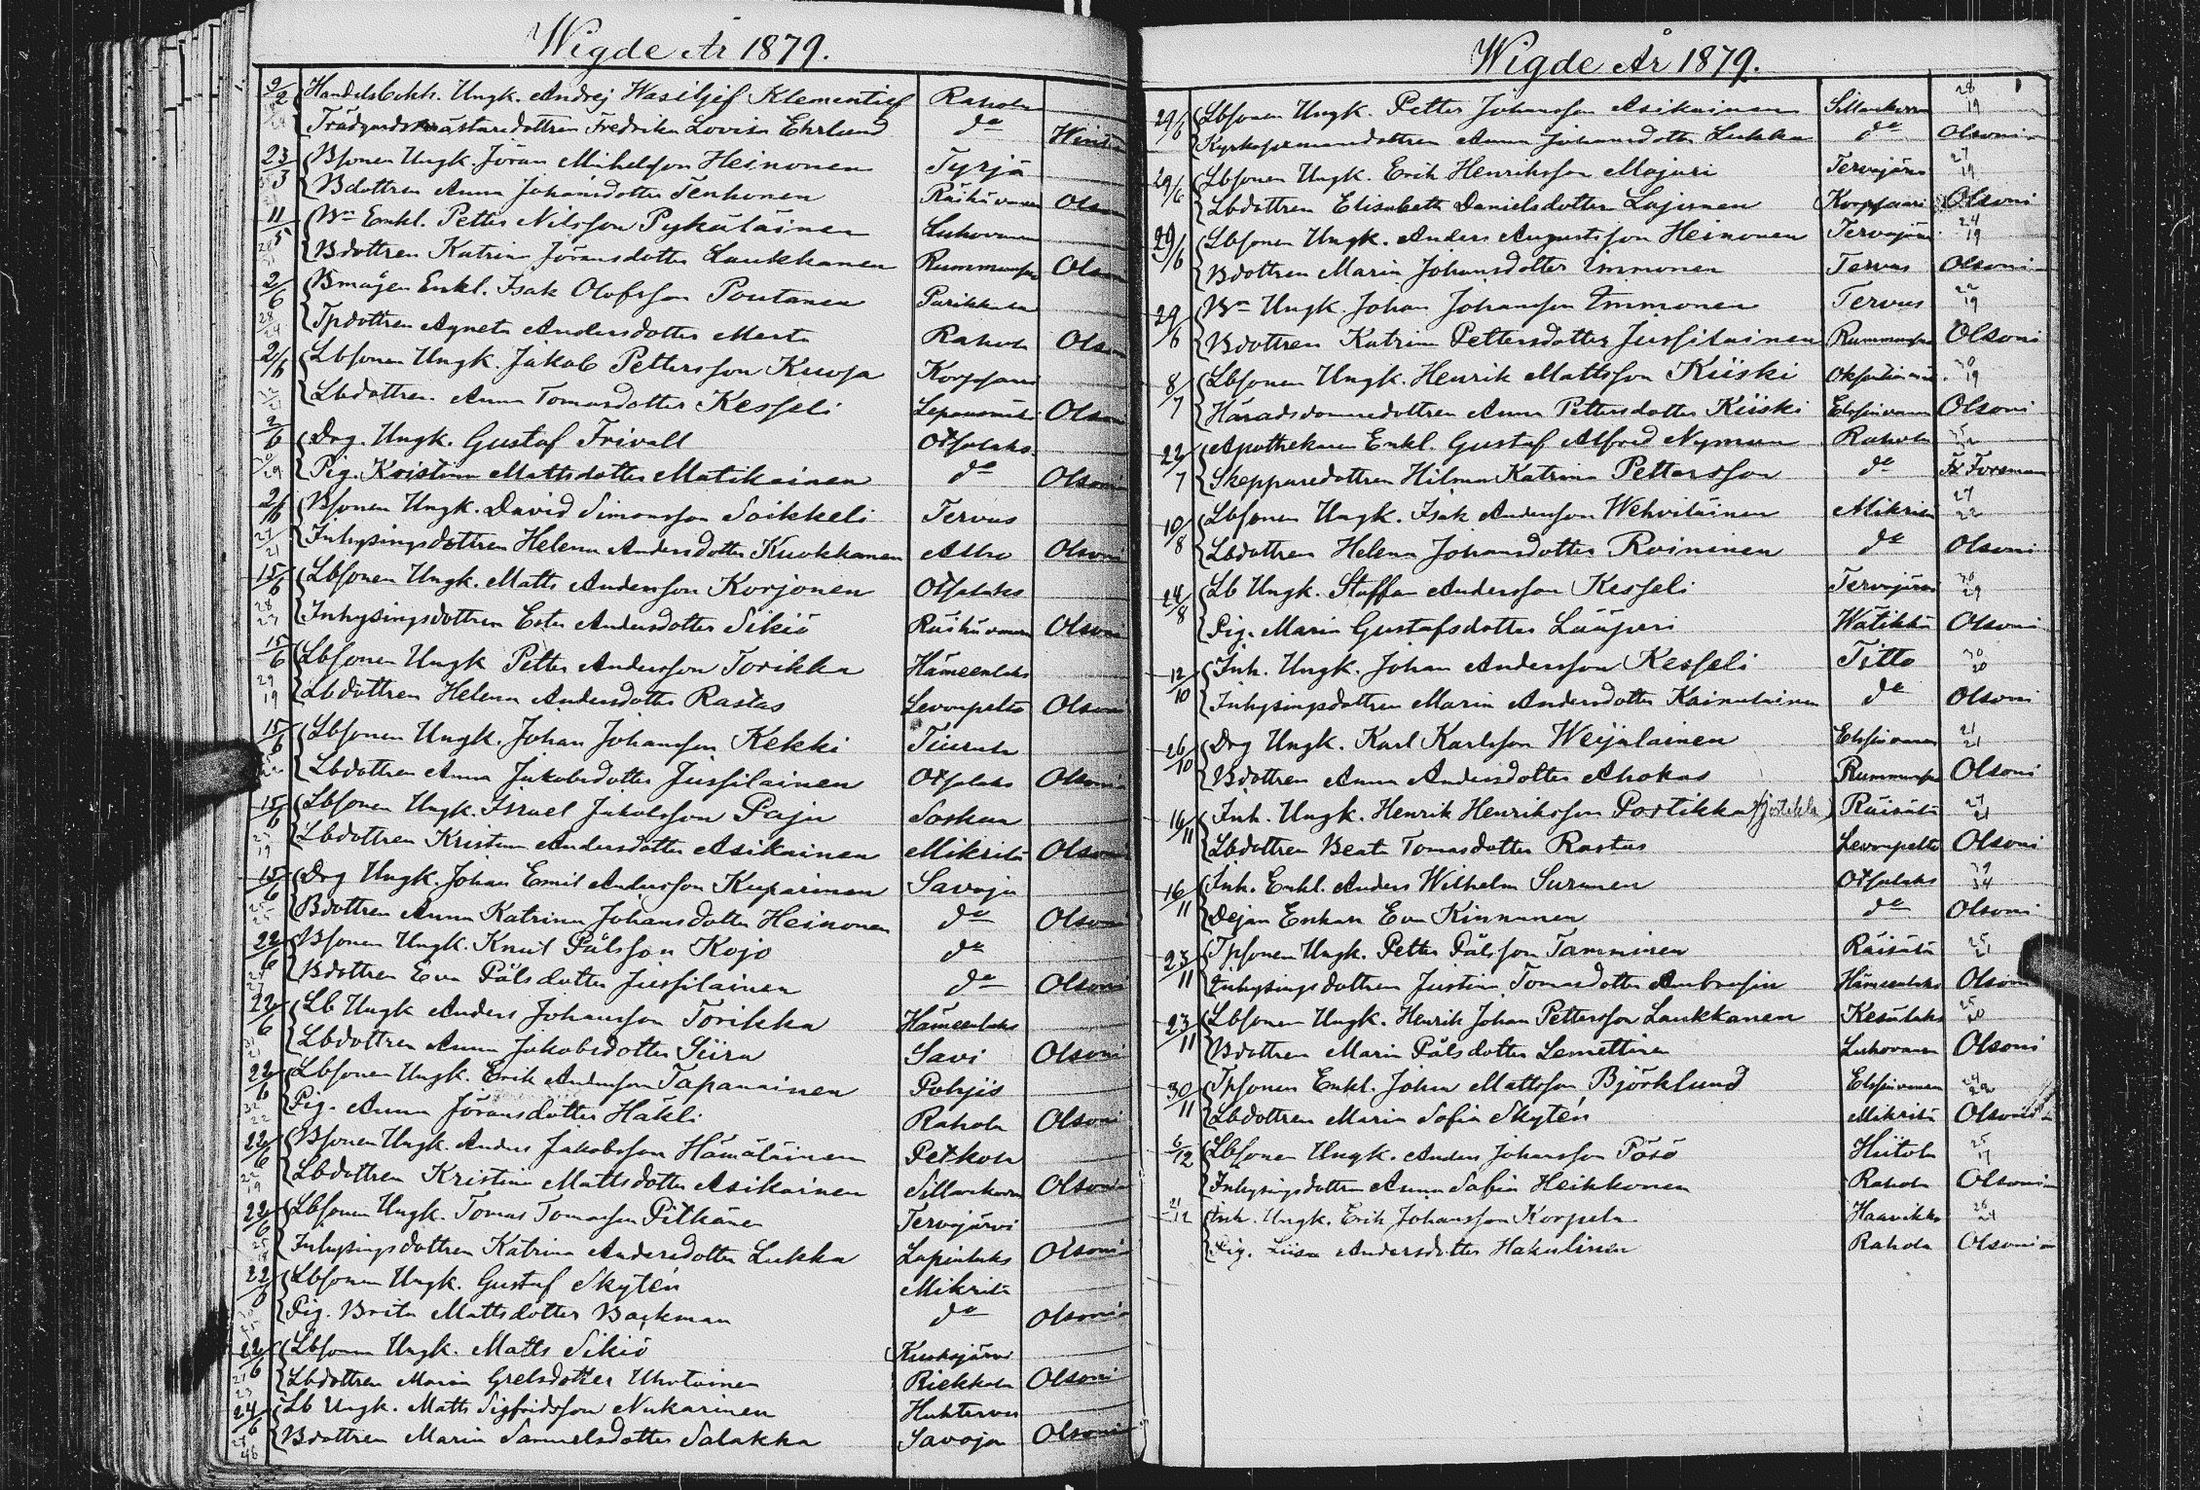 Wigde År 1879.
9/2 Handelsbokh. Ungk. Andrej Wasiljef Klementief Rahola
Trädgårdsmästaredottren Fredrika Lovisa Ehrlund do
23/3 Bsonen Ungk. Jöran Mihelsson Heinonen Tyrjä
Bdottren Anna Johansdotter Tenhonen
11/5 Bn Enkl. Petter Nilsson Pykäläinen
Bdottren Katrin Jöransdotter Laukkanen
2/6 Bmågen Enkl. Isak Olofsson Poutanen Parikkala
Tpdottren Agneta Andersdotter
2/6 Lbsonen Ungk. Jakob Pettersson Kuosa
Lbdottren Anna Tomasdotter Kesseli
2/6 Drg. Ungk. Gustaf Frivall Otsalaks
Pig. Kristina Mattsdotter Matikainen do Olsoni
2/6 Bsonen Ungk. David Simonsson Soikkeli Tervus
Inhysingsdottren Helena Andersdotter Kuokkanen Olsoni
15/6 Lbsonen Ungk. Matts Andersson Korjonen Otsalaks
Inhysingsdottren Ester Andersdotter Sikiö Olsoni
15/6 Lbsonen Ungk Petter Andersson Torikka Hämeenlaks
Lbdottren Helena Andersdotter Rastas Levonpelto Olsoni
15/6 Lbsonen Ungk. Johan Johansson Kekki Tiurula
Lbdottren Anna Jakobsdotter Jussilainen Otsalaks Olsoni
15/6 Lbsonen Ungk. Israel Jakobsson Paju Soskua
Lbdottren Kristina Andersdotter Asikainen Mikrilä Olsoni
15/6 Drg Ungk. Johan Emil Andersson Kuparinen Savoja
Bdottren Anna Katrina Johansdotter Heinonen do Olsoni
22/6 Bsonen Ungk. Knut Pålsson Kojo do
Bdottren Eva Pålsdotter Jussilainen do Olsoni
22/6 Lb Ungk Anders Johansson Torikka Hämeenlaks
Lbdottren Anna Jakobsdotter Siira Savi Olsoni
22/6 Lbsonen Ungk. Erik Andersson Tapanainen Pohjis
Pig. Anna Jöransdotter Häkli Rahola Olsoni
22/6 Bsonen Ungk. Anders Jakobsson Hämäläinen Petkola
Lbdottren Kristina Mattsdotter Asikainen Sillankorva Olsoni
22/6 Lbsonen Ungk. Tomas Tomasson Pitkänen Tervajärvi
Inhysingsdottren Katrina Andersdotter Lukka Lapinlaks Olsoni
22/6 Lbsonen Ungk. Gustaf Skytén Mikrilä
Pig. Brita Mattsdotter Backman do Olsoni
22/6 Lbsonen Ungk. Matts Sikiö Kuoksjärvi
Lbdottren Maria Grelsdotter Uhotainen Riekkala Olsoni
24/6 Lb Ungk. Matts Sigfridsson Nukarinen Huhtervu
Bdottren Maria Samuelsdotter Salakka Savoja Olsoni
Wigde År 1879.
29/6 Lbsonen Ungk. Petter Johansson Asikainen Sillankorva 28/19
Kyrkoförmansdottren Anna Johansdotter Lukka do Olsoni
29/6 Lbsonen Ungk. Erik Henriksson Majuri Tervajärvi 27/19
Lbdottren Elisabeth Danielsdotter Lajunen Korpsaari Olsoni
29/6 Lbsonen Ungk. Anders Augustsson Heinonen Tervajärvi 24/19
Bdottren Maria Johansdotter Immonen Tervus Olsoni
29/6 Bn Ungk. Johan Johansson Immonen Tervus 22/19
Bdottren Katrina Pettersdotter Jussilainen Rummunsuo Olsoni
8/7 Lbsonen Ungk. Henrik Mattsson Kiiski 30/19
Häradsdomaredottren Anna Pettersdotter Kiiski Elisenvaara Olsoni
22/7 Apothekare Enkl. Gustaf Alfred Nyman Rahola
Skepparedottren Hilma Katrina Pettersson do Fx Foreman
10/8 Lbsonen Ungk. Isak Andersson Wehviläinen Mikrilä 27/22
Lbdottren Helena Johansdotter Roininen do Olsoni
24/8 Lb Ungk. Staffan Andersson Kesseli Tervajärvi 30/29
Pig. Maria Gustafsdotter Lääperi Wätikkä Olsoni
12/10 Inh. Ungk. Johan Andersson Kesseli Titto 30/20
Inhysingsdottren Maria Andersdotter Kainulainen do Olsoni
26/10 Drg Ungk. Karl Karlsson Weijalainen Elisenvaara 21/21
Bdottren Anna Andersdotter Ahokas Rummunsuo Olsoni
16/11 Inh. Ungk. Henrik Henriksson Portikka Räisälä 27/21
Lbdottren Beata Tomasdotter Rastas Levonpelto Olsoni
16/11 Inh. Enkl. Anders Wilhelm Surmen Otsalaks 39/34
Pejan Enkan Eva Kinnunen do Olsoni
23/11 Tpsonen Ungk. Petter Pålsson Tamminen Räisälä 25/21
Inhysingsdottren Justina Tomasdotter Ambrusin Hämeenlaks Olsoni
23/11 Lbsonen Ungk. Henrik Johan Pettersson Laukkanen Kesälaks 25/20
Bdottren Maria Pålsdotter Lemettinen Olsoni
30/11 Tpsonen Enkl. Johan Mattsson Björklund Elisenvaara
Lbdottren Maria Sofia Skytén Mikrilä Olsoni
6/12 Lbsonen Ungk. Anders Johansson Pösö Hiitola 25/17
Inhysingsdottren Anna Sofia Heikkonen Rahola Olsoni
21/12 Inh. Ungk. Erik Johansson Korpela Haavikko
Pig. Liisa Andersdotter Hakulinen Rahola Olsoni